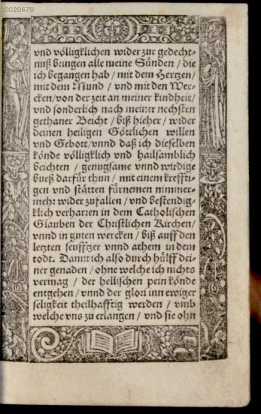 0020679
vnd völligklichen wider zur gedecht-
nuß bringen alle meine Sünden / die
ich begangen hab / mit dem Hertzen/
mit dem Mund / vnd mit den Wer-
cken / von der zeit an meiner kindheit/
vnd sonderlich nach meiner nechsten
gethaner Beicht / biß hieher / wider
deinen heiligen Göttlichen willen
vnd Gebott / vnnd daß ich dieselben
könde völligklich vnd hailsamblich
beichten / genugsame vnnd wirdige
bueß darfür thun / mit einem kreffti-
gen vnd stätten fürnemen nimmer-
mehr wider zufallen / vnd bestendig-
klich verharren in dem Catholischen
Glauben der Christlichen Kirchen/
vnnd in guten wercken / biß auff den
letzten seufftzer vnnd athem in dem
todt. Damit ich also durch hülff dei-
ner genaden / ohne welche ich nichts
vermag / der hellischen pein könde
entgehen / vnnd der glori inn ewiger
seligkeit theilhafftig werden / vmb
welche vns zu erlangen / vnd sie ohn